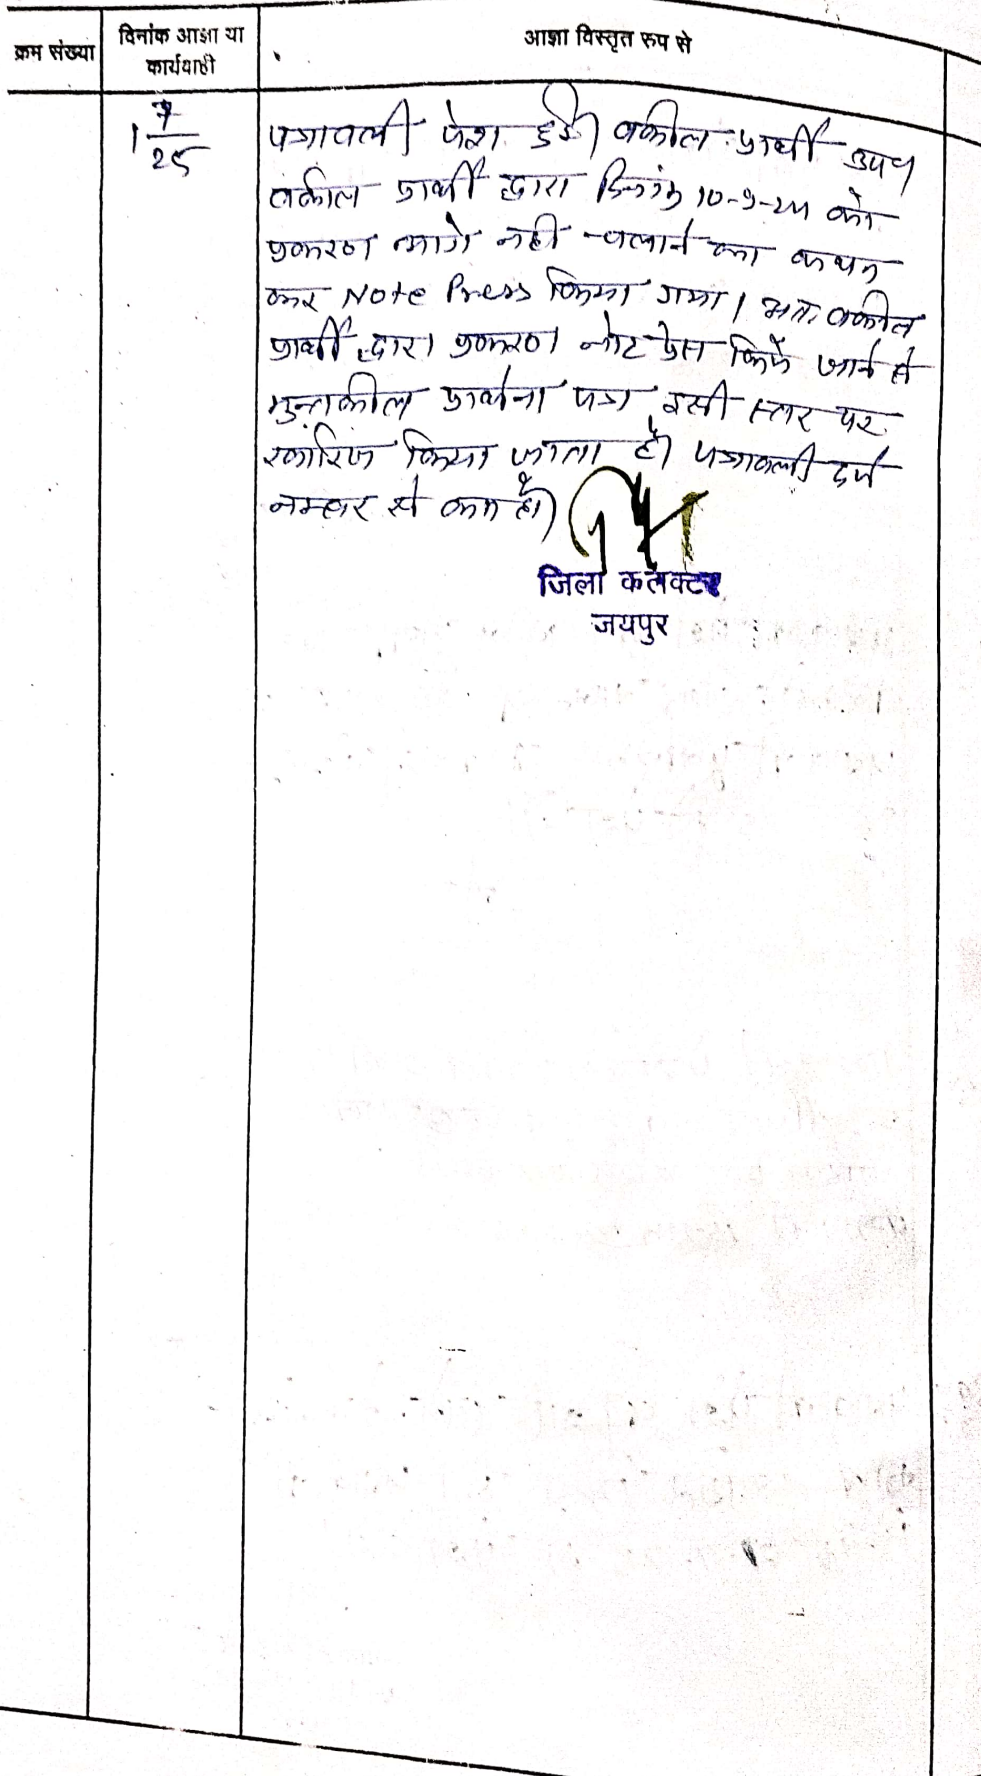 क्रम संख्या
दिनांक आज्ञा या
कार्यवाही
आज्ञा विस्तृत रूप से
1 7/25
पत्रावली पेश हुई। वकील प्रार्थी उप०
वकील प्रार्थी द्वारा दिनांक 10-9-24 को
प्रकरण आगे नहीं चलाने का कथन
कर Note Press किया गया। अतः वकील
प्रार्थी द्वारा प्रकरण नोट प्रेस किये जाने से
मुन्तकील प्रार्थना पत्र इसी स्तर पर
खारिज किया जाता है। पत्रावली दर्ज
नम्बर से कम हो।
जिला कलक्टर
जयपुर